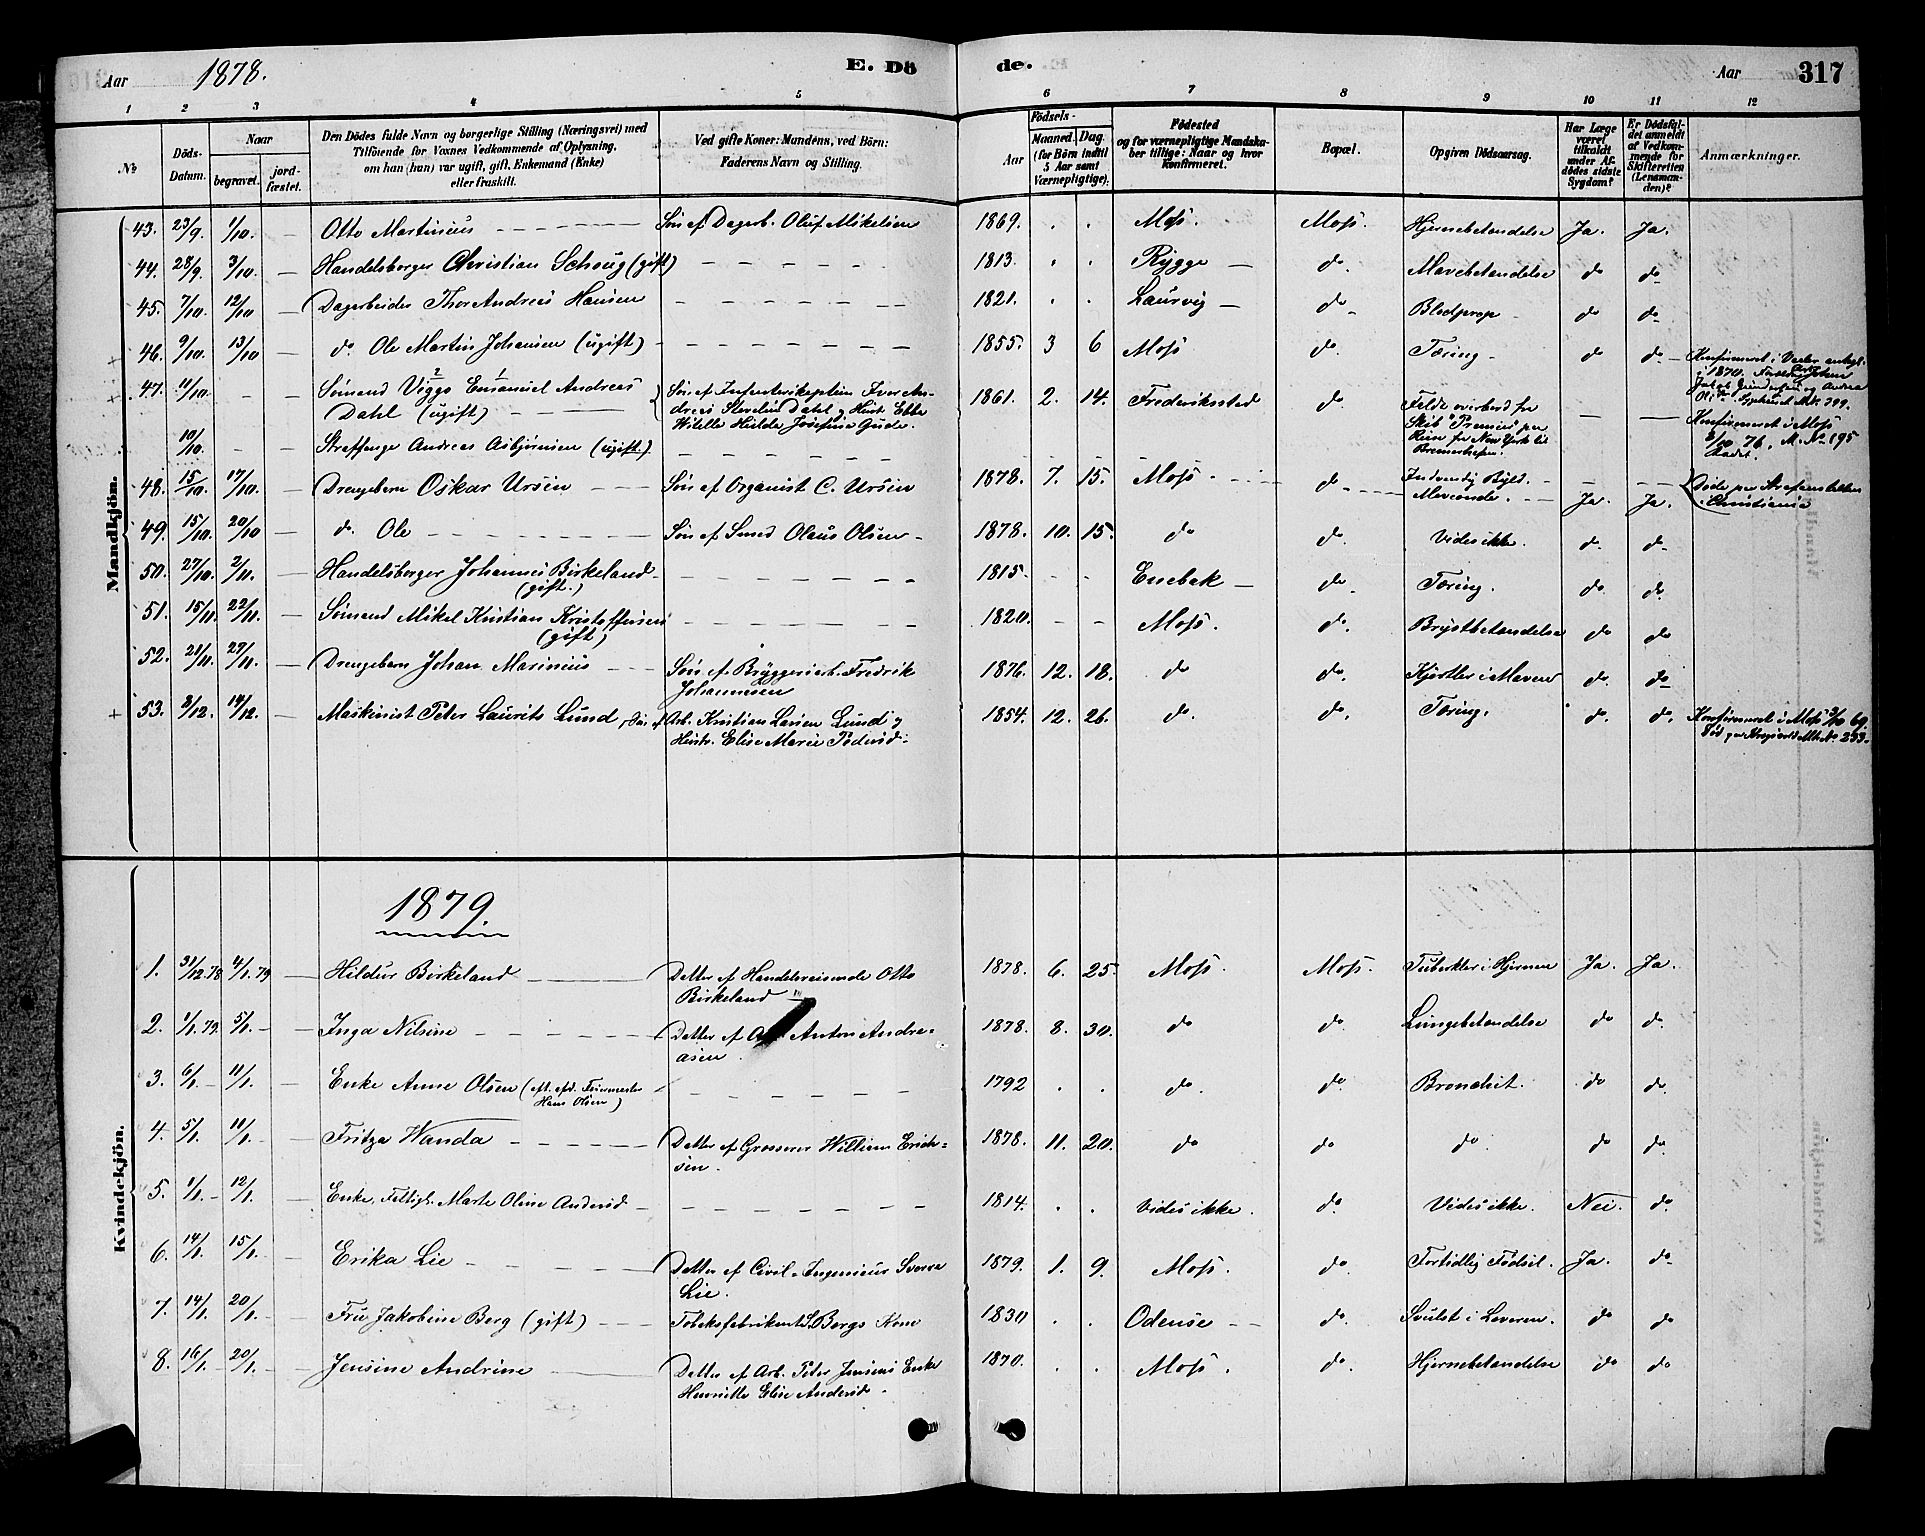 Aar 1878. E. Dö de. Aar 317
1 2 3 4 5 6 7 8 9 10 11 12
No
Döds-Datum.
Naar
begravet.
jord-fæstet.
Den Dödes fulde Navn og borgerlige Stilling (Næringsvei) med
Tilföiende for Voxnes Vedkommende af Oplysning,
om han (hun) var ugift, gift, Enkemand (Enke)
eller fraskilt.
Ved gifte Koner: Mandens, ved Börn:
Faderens Navn og Stilling.
Födsels-
Aar
Maaned. Dag.
(for Börn indtil
5 Aar samt
Værnepligtige).
Födested
og for værnepligtige Mandska-
ber tillige: Naar og hvor
konfirmeret.
Bopæl.
Opgiven Dödsaarsag.
Har Læge
været
tilkaldt
under Af-
dödes sidste
Sygdom?
Er Dödsfal-
det anmeldt
af Vedkom-
mende for
Skifteretten
(Lensman-
den)?
Anmærkninger.
Mandkjön.
43. 23/9. 1/10. — Otto Martinius — Søn af Dagarb. Oluf Mikelsen 1869. . . Moss. Moss. Hjernebetændelse Ja. Ja.
44. 28/9. 3/10. — Handelsborger Christian Schoug (gift) — 1813. . . Rygge — do. Mavebetændelse do do
45. 7/10. 12/10 — Dagarbeider Thor Andreas Hansen — 1821. . . Laurvig — do Blodprop do do
46. 9/10. 13/10 — do. Ole Martin Johansen (ugift) — 1855. 3 6 Moss do. Tæring do do
47. 11/10 - - Sømand Viggo Emanuel Andreas
Dahl (ugift) — Søn af Infanterikaptein Iver An-
dreas Stevelin Dahl og Hust. Ebba
Hilda Josefine Gude. 1861. 2. 14. Frederiksstad do. Faldt overbord fra
Skib "Premier" paa
Reise fra New York til
Bremerhafen.
Konfirmeret i
10/10 - - Straffange Andreas Asbjørnsen (ugift) — Konfirmeret i Moss
76, M. No 195
48. 15/10. 17/10. — Drengebarn Oskar Ursin — Søn af Organist C. Ursin 1878. 7. 15. Moss do Indvendig Byld.
Maveonde. Ja. Ja. Døde paa Strafanstalten
i Christiania
49. 15/10. 20/10 — do. Ole — Søn af Smed Olaus Olsen 1878. 10. 15. do do. Vides ikke. do. do
50. 27/10. 2/11. — Handelsborger Johannes Birkeland
(gift.) 1815. - - Enebak — do. Tæring. do. do.
51. 15/11. 22/11. — Sømand Mikel Kristian Kristoffersen
(gift) 1820. - - Moss. do. Brystbetændelse do do
52. 21/11. 29/11. — Drengebarn Johan Marinius — Søn af Bryggeriarb. Fredrik
Johannesen 1876. 12. 18. do do. Kjertler i Maven do. do
+ 53. 8/12. 14/12. — Maskinist Peter Laurits Lund, Søn af Arb. Kristian Larsen Lund og
Hustr. Elise Marie Pedersd. 1854. 12. 26. do. do. Tæring. do. do. Konfirmeret i Moss 3/10 69.
No 233.
Kvindekjön.
1879.
1. 31/12.78 4/1.79 — Hildur Birkeland — Datter af Handelsreisende Otto
Birkeland 1878. 6. 25. Moss. Moss. Tuberkler i Hjernen Ja. Ja.
2. 1/1.79. 5/1. — Inga Nilsine — Datter af Anton Andre-
asen. 1878. 8. 30. do do. Lungebetændelse do do.
3. 6/1. 11/1. — Enke Anne Olsen (eft. afd. Feiermester
Hans Olsen) 1792 . . do do. Bronchit. do do.
4. 5/1. 11/1. — Fritza Wanda — Datter af Grosserer William Erich-
sen. 1878. 11. 20. do do do. do do
5. 1/1. 12/1. — Enke, Fattigl. Marte Oline Andersd — 1814. . . Vides ikke. do. Vides ikke. Nei. do.
6. 14/1. 15/1. — Erika Lie — Datter af Civil-Ingeniør Sverre
Lie. 1879. 1. 9. Moss. do. Fortidlig Fødsel. Ja. do
7. 14/1. 20/1. — Fru Jakobine Berg (gift) — Tobaksfabrikant S. Bergs Kone 1830 . . Odense — do. Svulst i Leveren. do do
8. 16/1. 20/1. — Jensine Andrine — Datter af Arb. Peter Jensens Enke
Henriette Elise Andersd. 1870. . . Moss. do. Hjernebetændelse do do